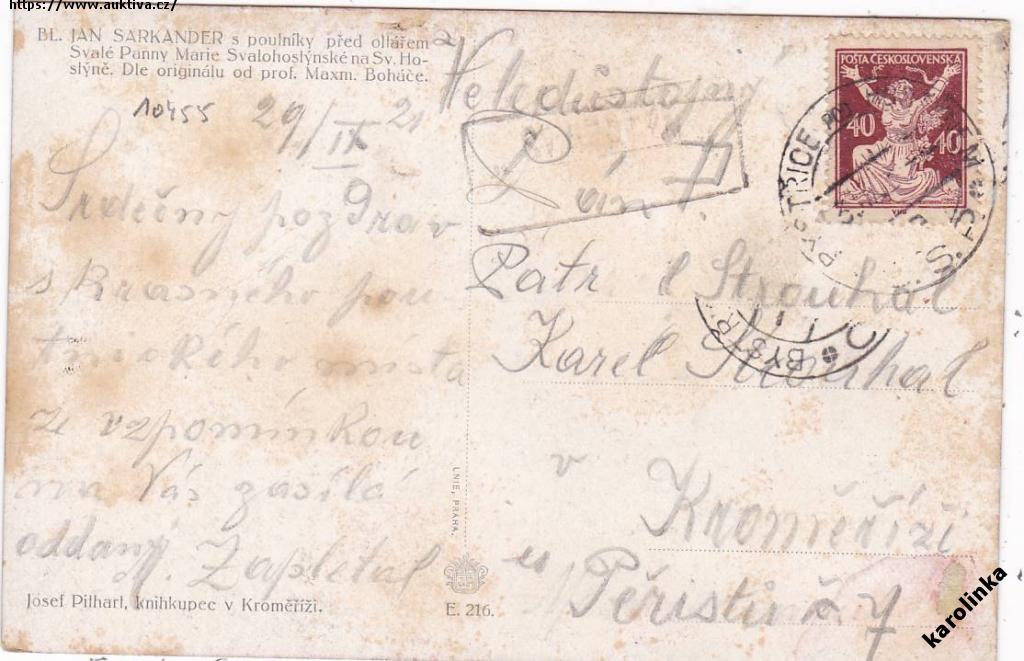 https://www.auktiva.cz/
BL. JAN SARKANDER s poutníky před oltářem
Svaté Panny Marie Svatohostýnské na Sv. Ho-
stýně. Dle originálu od prof. Maxm. Boháče.
10455
29/IX 21
Srdečný pozdrav
s krásného pou
tnického místa
ze vzpomínkou
na Vás zasílá
oddaný
Zapletal
Josef Pithart, knihkupec v Kroměříži.
E. 216.
LNIE, PRAHA.
Velidůstojný
Pán
Pátr
Strouhal
Karel Strouhal
v
Kroměříži
POŠTA ČESKOSLOVENSKÁ
40 40
BYSTŘICE POD
BYSTŘ
karolinka